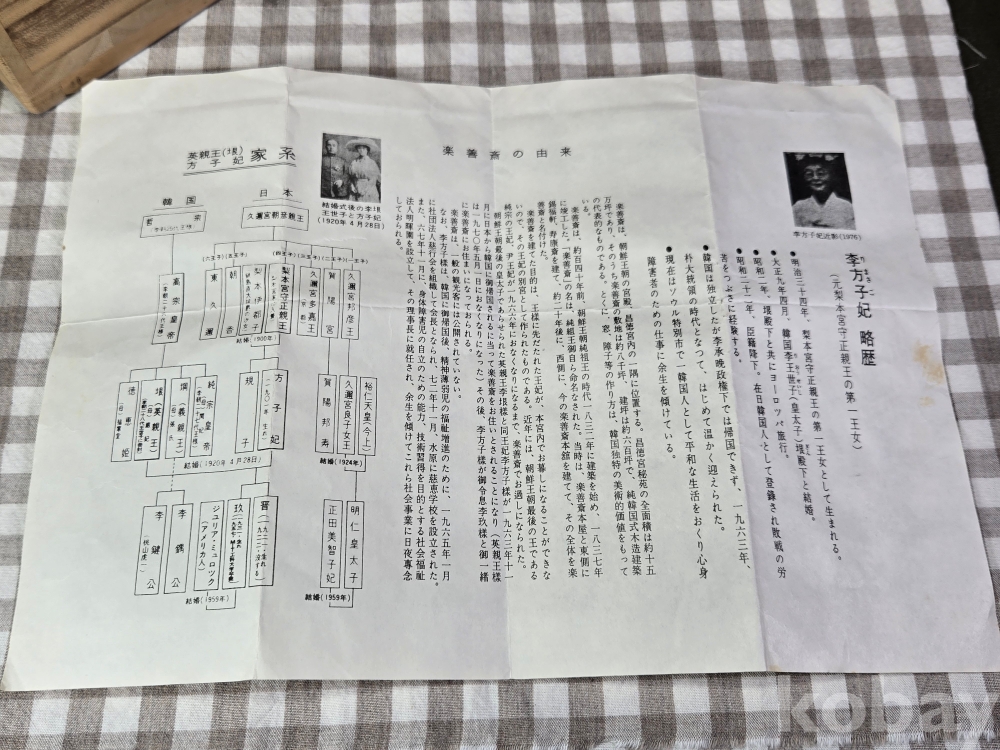 李方子妃近影(1976)
李方子妃 略歴
(元梨本宮守正親王の第一王女)
●明治三十四年、梨本宮守正親王の第一王女として生まれる。
●大正九年四月、韓国李王世子(皇太子)垠殿下と結婚。
●昭和二年、垠殿下と共にヨーロッパ旅行。
●昭和二十二年、臣籍降下。在日韓国人として登録され敗戦の労
苦をつぶさに経験する。
●韓国は独立したが李承晩政権下では帰国できず、一九六三年、
朴大統領の時代となって、はじめて温かく迎えられた。
●現在はソウル特別市で一韓国人として平和な生活をおくり心身
障害者のための仕事に余生を傾けている。
楽善斎の由来
楽善斎は、朝鮮王朝の宮殿、昌徳宮内の一隅に位置する。昌徳宮秘苑の全面積は約十五
万坪であり、そのうち楽善斎の敷地は約八千坪、建坪は約六百坪で、純韓国式木造建築
の代表的なものである。とくに、窓、障子等の作り方は、韓国独特の美術的価値をもって
いる。
楽善斎は、約百四十年前、朝鮮王朝純祖王の時代一八三二年に建築を始め、一八三七年
に竣工した。「楽善斎」の名は、純祖王御自ら命名なされた。当時は、楽善斎本屋と東側に
錫福軒、寿康斎を建て、約二十年後に、西側に、今の楽善斎本舘を建てて、その全体を楽
善斎と名付けた。
楽善斎を建てた目的は、王様に先だたれた王妃が、本宮内でお暮しになることができな
いので、その王妃の別宮として作られたものである。近年には、朝鮮王朝最後の王である
純宗の王妃、尹王妃が一九六六年におなくなりになるまで、楽善斎でお過しになられた。
朝鮮王朝最後の皇太子であらせられた英親王李垠様と同王妃李方子様が一九六三年十一
月に日本から韓国に御帰国されるに当って楽善斎をお住いとされることになり(英親王様
は一九七〇年五月一日におなくなりになった)その後、李方子様が御令息李玖様と御一緒
に楽善斎にお住まいになっておられる。
楽善斎は、一般の観光客には公開されていない。
なお、李方子様は、韓国に御帰国後、精神薄弱児の福祉増進のために、一九六五年一月
に社団法人慈行会を組織して会長となられ、七二年十一月、水原に慈恵学校を設立された。
また、六七年十一月に、身体障害児の自立のための能力、技術習得を目的とする社会福祉
法人明暉園を設立して、その理事長に就任され、余生を傾けてこれら社会事業に日夜専念
しておられる。
結婚式後の李垠
王世子と方子妃
(1920年4月28日)
英親王(垠)
方子妃
家系
日本
韓国
久邇宮朝彦親王
哲宗
(二王子)
(三王子)
(四王子)
(五王子)
(六王子)
久邇宮邦彦王
賀陽宮
久邇宮多嘉王
梨本宮守正親王
梨本伊都子
朝香
東久邇
高宗皇帝
結婚(1900年)
裕仁天皇(今上)
久邇宮良子女王
結婚(1924年)
賀陽邦寿
方子妃
規子
純宗皇帝
堈(義親王)
垠(英親王)
徳恵姫
結婚(1920年4月28日)
明仁皇太子
正田美智子妃
結婚(1959年)
晋
玖
ジュリア・ミュロック
(アメリカ人)
結婚(1959年)
李鍝公
李鍵公
(桃山虔一)
kobay